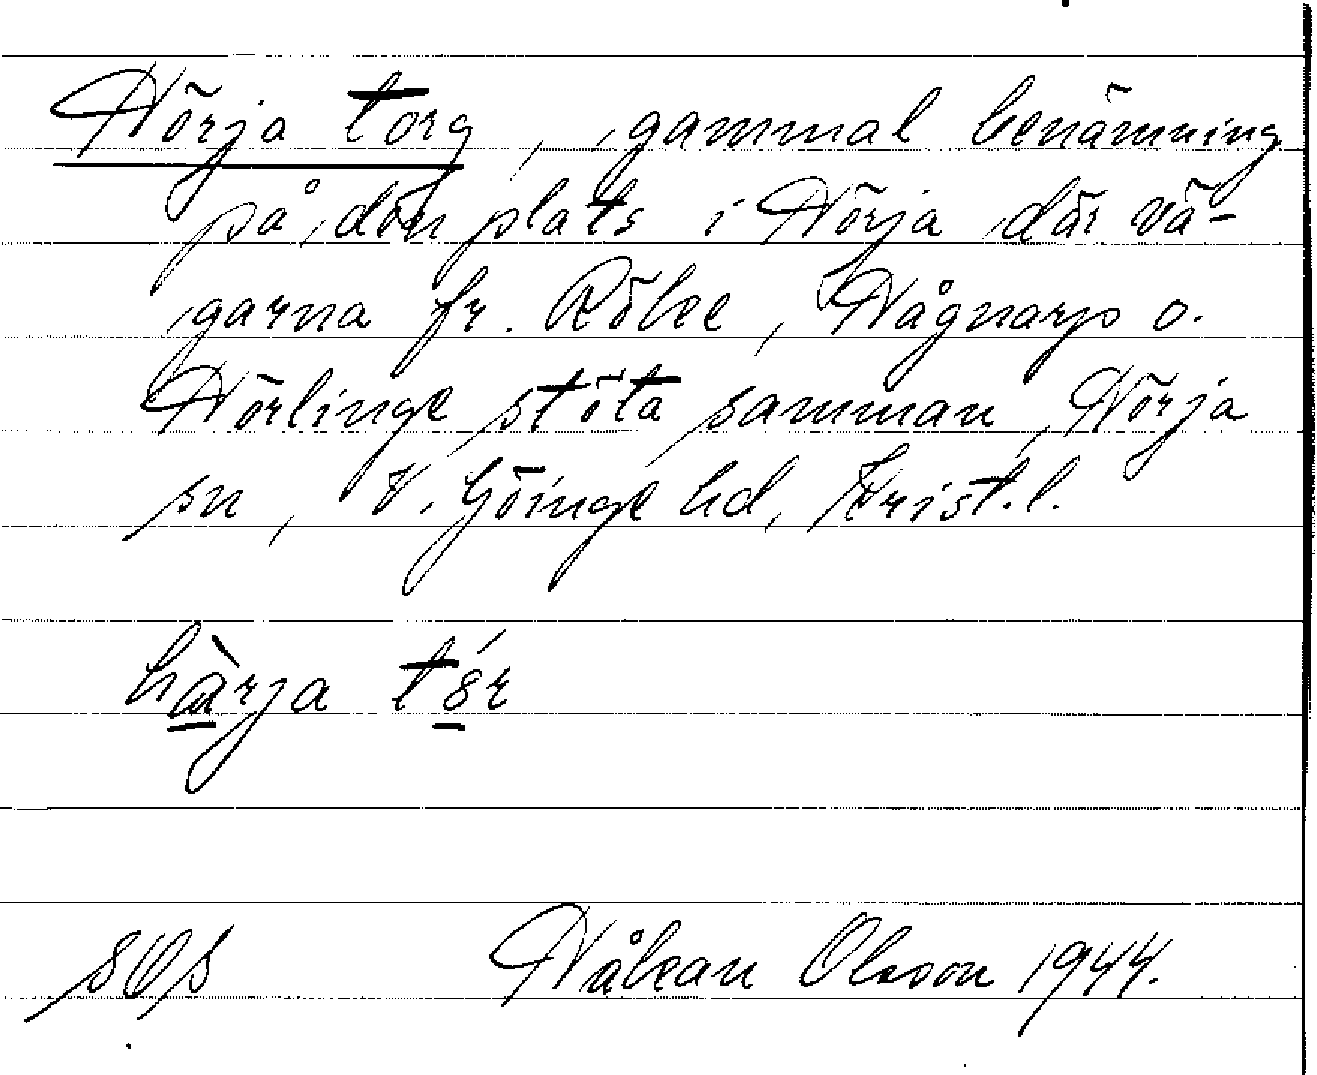 Hörja torg, gammal benämning
på den plats i Hörja där vä-
garna fr. Röke, Hågnarp o.
Hörlinge stöta samman, Hörja
sn, V. Göinge hd, Krist. l.
hàrja tór
Håkan Olsson 1944.